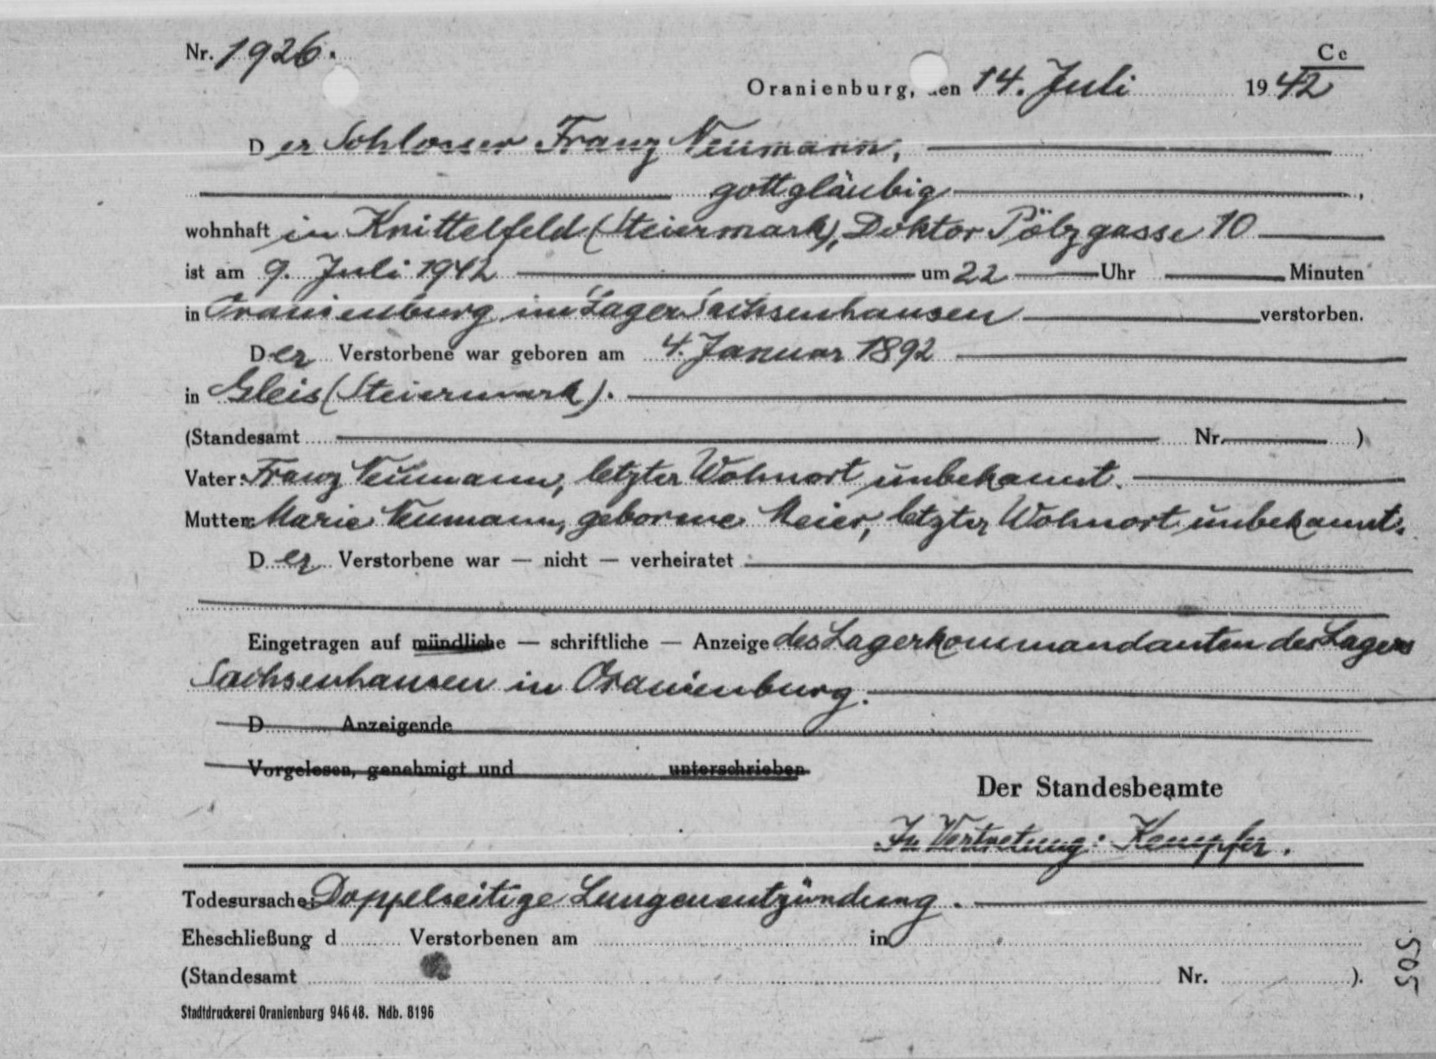 Nr. 1926.
Cc
Oranienburg, den 14. Juli 1942
Der Schlosser Franz Neumann,
gottgläubig,
wohnhaft in Knittelfeld (Steiermark), Doktor Pölzgasse 10
ist am 9. Juli 1942 um 22 Uhr Minuten
in Oranienburg im Lager Sachsenhausen verstorben.
Der Verstorbene war geboren am 4. Januar 1892
in Gleis (Steiermark).
(Standesamt Nr. )
Vater: Franz Neumann, letzter Wohnort unbekannt.
Mutter: Marie Neumann, geborene Meier, letzter Wohnort unbekannt.
Der Verstorbene war — nicht — verheiratet
Eingetragen auf mündliche — schriftliche — Anzeige des Lagerkommandanten des Lagers
Sachsenhausen in Oranienburg.
D Anzeigende
Vorgelesen, genehmigt und unterschrieben
Der Standesbeamte
In Vertretung: Kempfer.
Todesursache: Doppelseitige Lungenentzündung.
Eheschließung d Verstorbenen am in
(Standesamt Nr. ).
505
Stadtdruckerei Oranienburg 946 48. Ndb. 8196